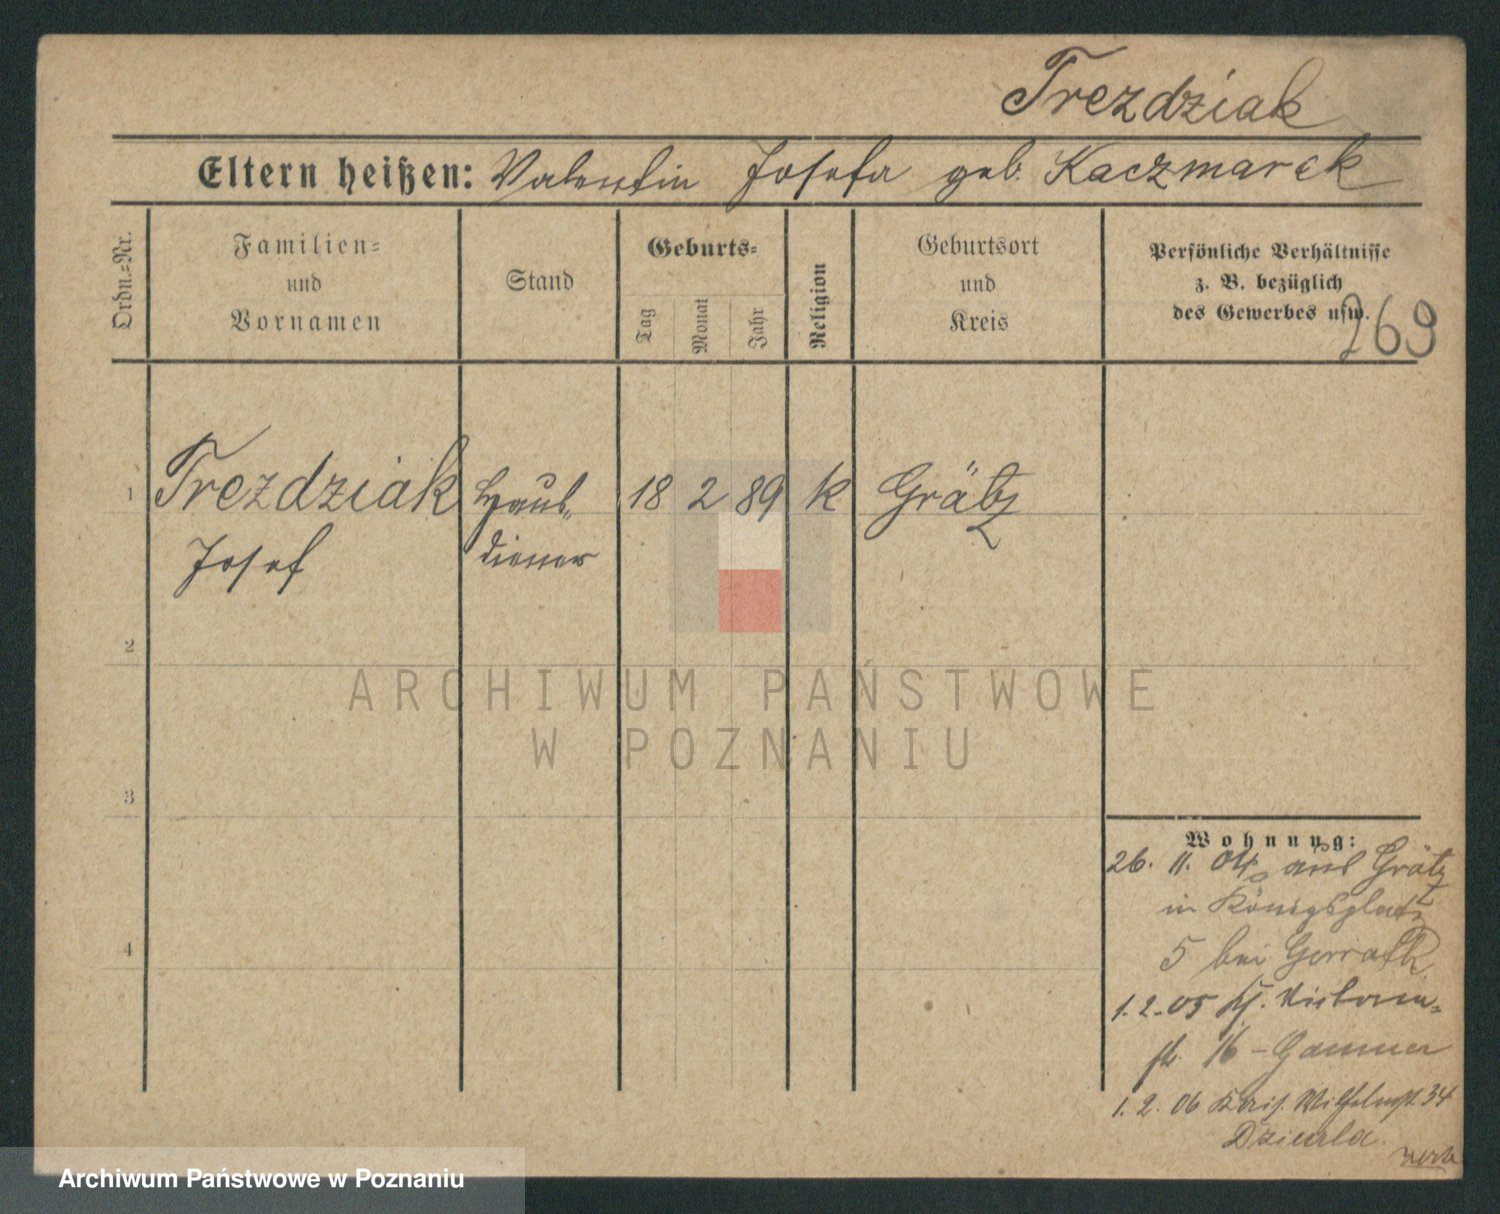 Trezdziak
Eltern heißen: Valentin Josefa geb. Kaczmarek
Ordn.=Nr.
Familien=
und
Vornamen
Stand
Geburts=
Tag
Monat
Jahr
Religion
Geburtsort
und
Kreis
Persönliche Verhältnisse
z. B. bezüglich
des Gewerbes usw.
269
1 Trezdziak Haus= 18 2 89 k Grätz
Josef diener
2
ARCHIWUM PAŃSTWOWE
W POZNANIU
3
Wohnung:
26. 11. 04 aus Grätz
in Königsplatz
5 bei
4
1. 2. 05 Victoria=
str. 16 - Gammer
1. 2. 06 Wilhelmstr. 34
Dziurla.
Archiwum Państwowe w Poznaniu